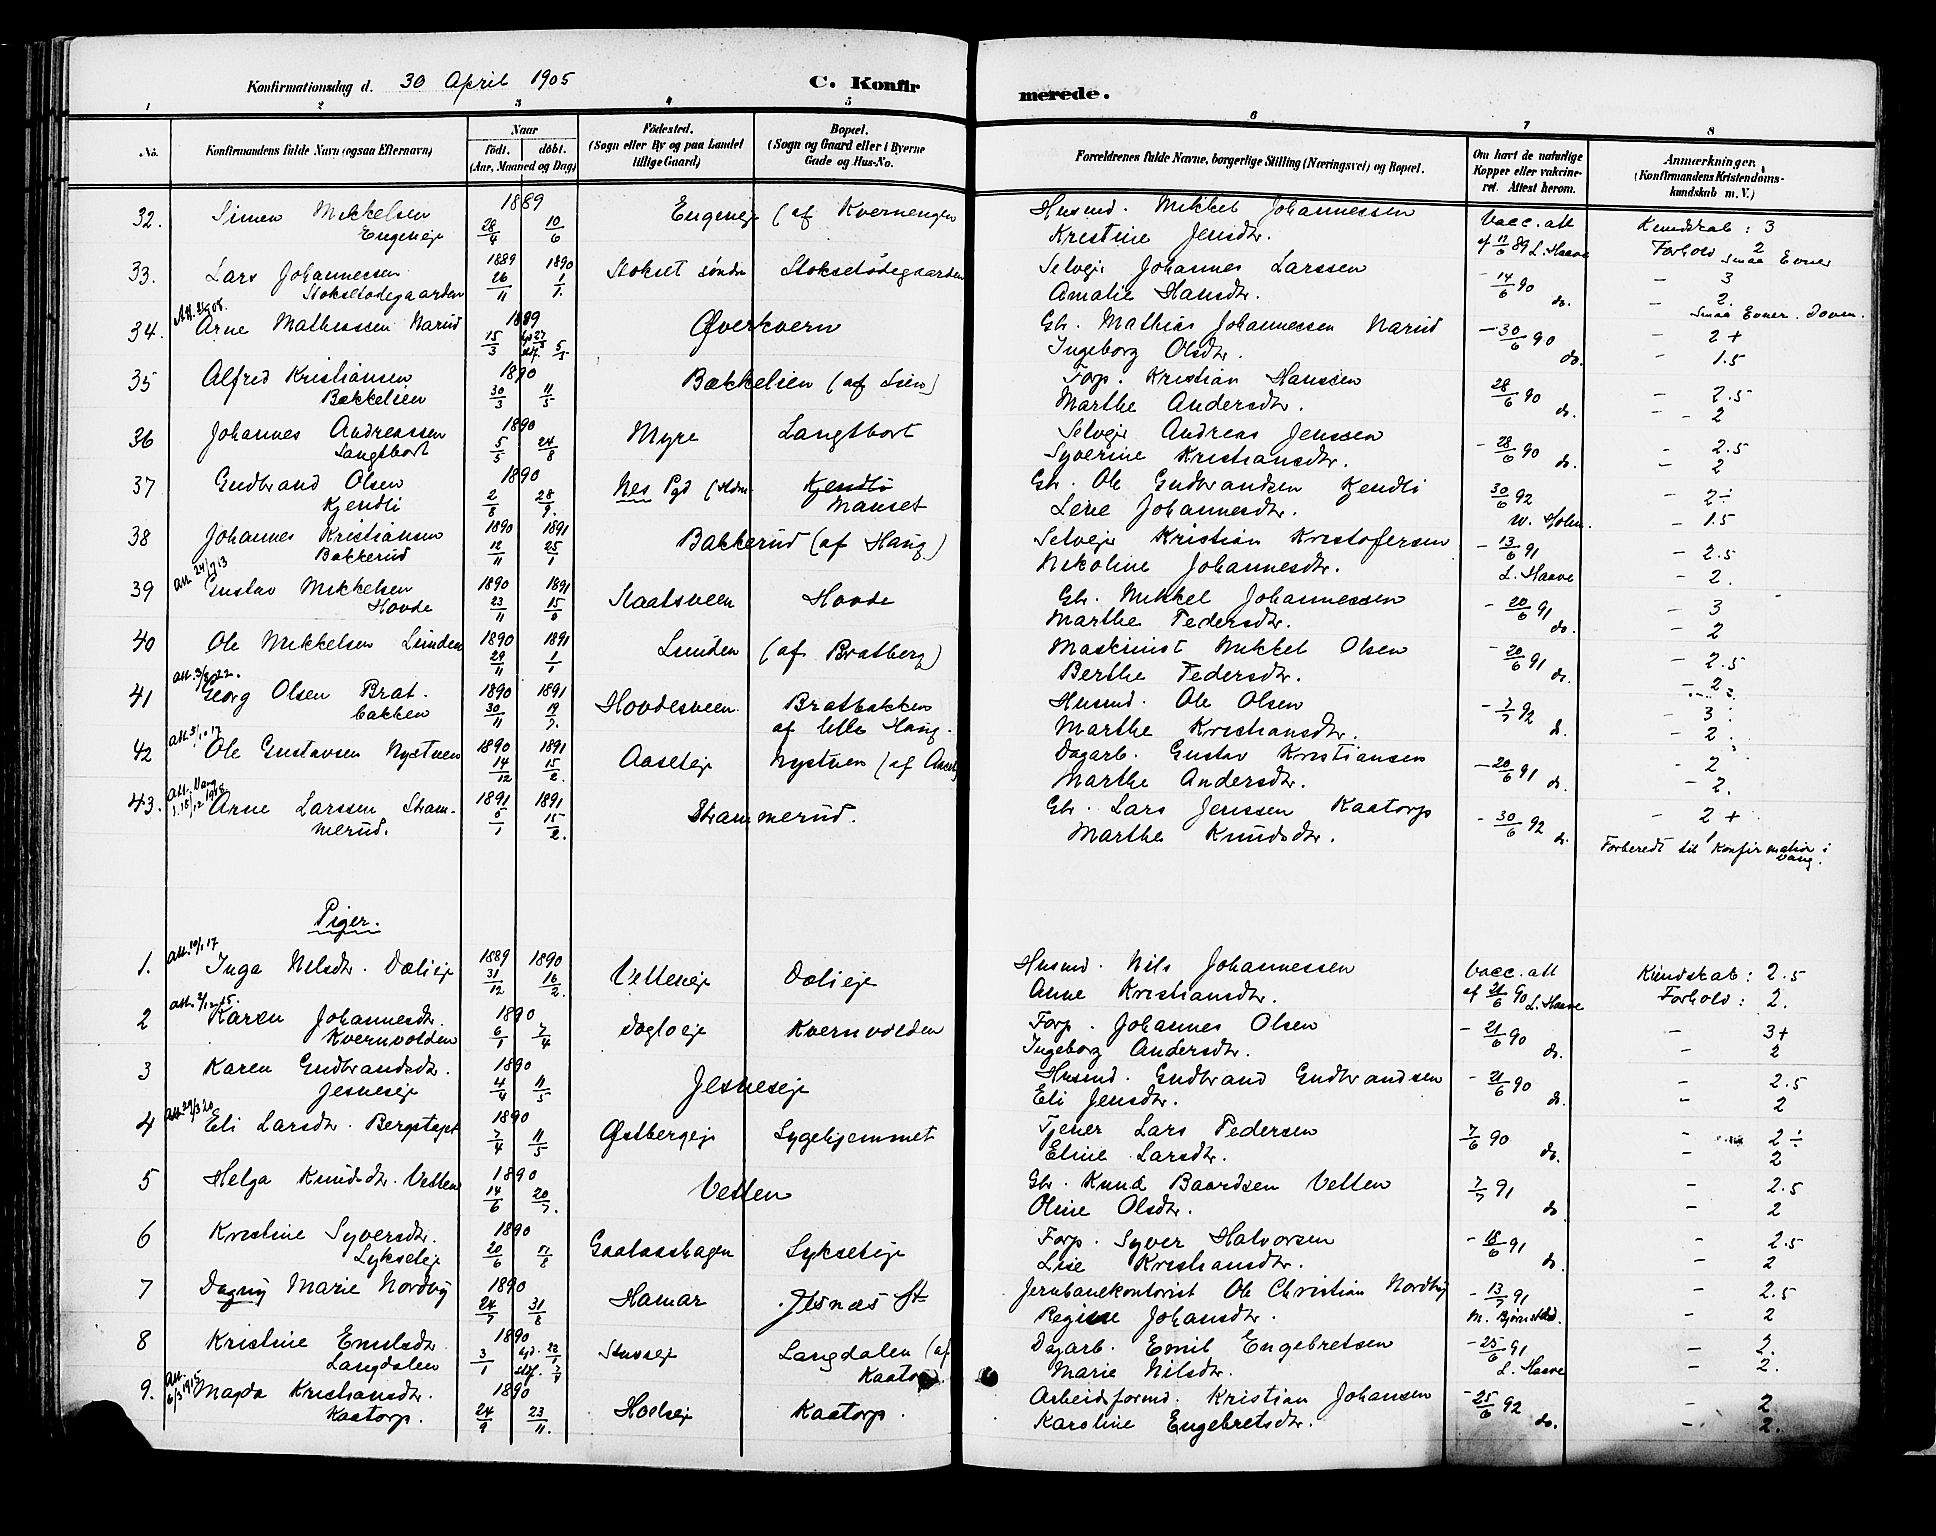 Konfirmationsdag d. 30 April 1905
C. Konfirmerede.
1 2 3 4 5 6 7 8
No. Konfirmandens fulde Navn (ogsaa Efternavn) Naar født. døbt. (Aar, Maaned og Dag) Fødested. (Sogn eller By og paa Landet tillige Gaard) Bopæl. (Sogn og Gaard eller i Byerne Gade og Hus-No. Forældrenes fulde Navne, borgerlige Stilling (Næringsvei) og Bopæl. Om havt de naturlige Kopper eller vakcineret. Attest herom. Anmærkninger. (Konfirmandens Kristendomskundskab m. V.)
32. Simen Mikkelsen 1889 Engeneje (af Kvernengen Husmd. Mikkel Johannessen Vacc. att Kundskab: 3
Engeneje 28/4 10/6 Kristine Jensdtr. af 11/6 89 L. Haave Forhold 2 Smaa Evner
33. Lars Johannessen 1889 1890 Stokset søndre Stoksetødegaarden Selvejer Johannes Larssen - 14/6 90 - 3
Stoksetødegaarden 26/11 1/1. Amalie Hansdtr. do. - 2. Smaa Evner. Doven.
34. Arne Mathiassen Narud 1889 Øverkvern Gbr. Mathias Johannessen Narud - 30/6 90 - 2+
15/3 5/5 Ingeborg Olsdtr. do. - 1.5
35 Alfred Kristiansen 1890 Bækkelien (af Lien) Forp. Kristian Hanssen 28/6 90 - 2.5
Bækkelien 30/3 11/5 Marthe Andersdtr. do. - 2
36 Johannes Andreassen 1890 Myre Langtbort Selvejer Andreas Jenssen - 28/6 90 - 2.5
Langtbort 5/5 24/8 Syverine Kristiansdtr. do. - 2
37 Gudbrand Olsen 1890 Nes Pgd Kjendli Gbr. Ole Gudbrandsen Kjendli 30/6 92 - 2÷
Kjendli 2/8 28/9. Manset Lene Johannesdtr. W. Holm. - 1.5
38 Johannes Kristiansen 1890 1891 Bakkerud (af Haug) Selvejer Kristian Kristofersen - 13/6 91 - 2.5
Bakkerud 12/11 25/1 Nikoline Johannesdtr. L. Haave - 2.
39 Att. 24/1 13 Gustav Mikkelsen 1890 1891 Kaatsveen Hovde Gbr. Mikkel Johannessen - 20/6 91 - 3
Hovde 23/11 Marthe Pedersdtr. do. - 2
40 Ole Mikkelsen Lunden 1890 1891 Lunden (af Bratberg) Maskinist Mikkel Olsen - 20/6 91 - 2.5
29/11 1/1 Berthe Pedersdtr. do. - 2
41 Att. 3/8 22. Georg Olsen Bratbakken 1890 1891 Hovdesveen Bratbakken Husmd. Ole Olsen - 7/7 92 - 3.
30/11 af lille Haug. Marthe Kristiansdtr. do. - 2.
42 Ole Gustavsen Nystuen 1890 1891 Aaseteje Nystuen (af Dagarb. Gustav Kristiansen - 20/6 91 - 2
14/12 15/2. Marthe Andersdtr. do. - 2.
43. Arne Larssen Strammerud. 1891 1891 Strammerud. Gbr. Lars Jenssen Kaatorp - 30/6 92 - 2+
15/2. Marthe Knudsdtr. do. Forberedt til Konfirmation i Vang.
Piger.
1. Att. 10/1 17 Inga Nilsdtr. Dælieje 1889 1890 Vetteneje Dælieje Husmd. Nils Johannessen Vacc. att Kundskab: 2.5
31/12 16/2. Anne Kristiansdtr. af 21/6 90 L. Haave Forhold: 2.
2 Karen Johannesdtr. 1890 Dogloeje Kvernvolden Forp. Johannes Olsen - 21/6 90 - 3+
Kvernvolden 6/1 7/4 Ingeborg Andersdtr. do. - 2
3 Karen Gudbrandsdtr. 1890 Jesneseje Husmd. Gudbrand Gudbrandsen - 21/6 90 - 2.5
Jesneseje 4/4 11/5 Eli Jensdtr. do. - 2
4 Att. 29/3 20 Eli Larsdtr. Bergstept 1890 Østbergeje Sygehjemmet Tjener Lars Pedersen 7/6 90 - 2÷
7/4 11/5 Eline Larsdtr. do. - 2
5 Helga Knudsdtr. Vetten 1890 Vetten Gbr. Knud Baardsen Vetten 7/7 91 - 2.5
14/6 20/7. Oline Olsdtr. do - 2
6 Kristine Syversdtr. 1890 Gaalaashagen Lykseteje Forp. Syver Halvorsen - 18/6 91 - 2.5
Lykseteje 20/6 17/8 Lise Kristiansdtr. do. - 2
7 Dagny Marie Nordby 1890 Hamar Jesnæs St. Jernbanekontorist Ole Christian Nordby - 13/7 91 - 2.5
24/7 31/8 Regine Johansdtr. M. Bjørnstad. - 2
8 Kristine Emilsdtr. 1890 Stuveje Langdalen (af Dagarb. Emil Engebretsen - 25/6 91 - 2.
Langdalen 3/1 Kaatorp Marie Nilsdtr. L. Haave - 2.
9. Att. 6/3 1915 Magda Kristiansdtr. 1890 Hoelseje Kaatorp. Arbeidsformd. Kristian Johansen - 25/6 92 - 2
Kaatorp. 24/9 23/11 Karoline Engebretsdtr. do. - 2.